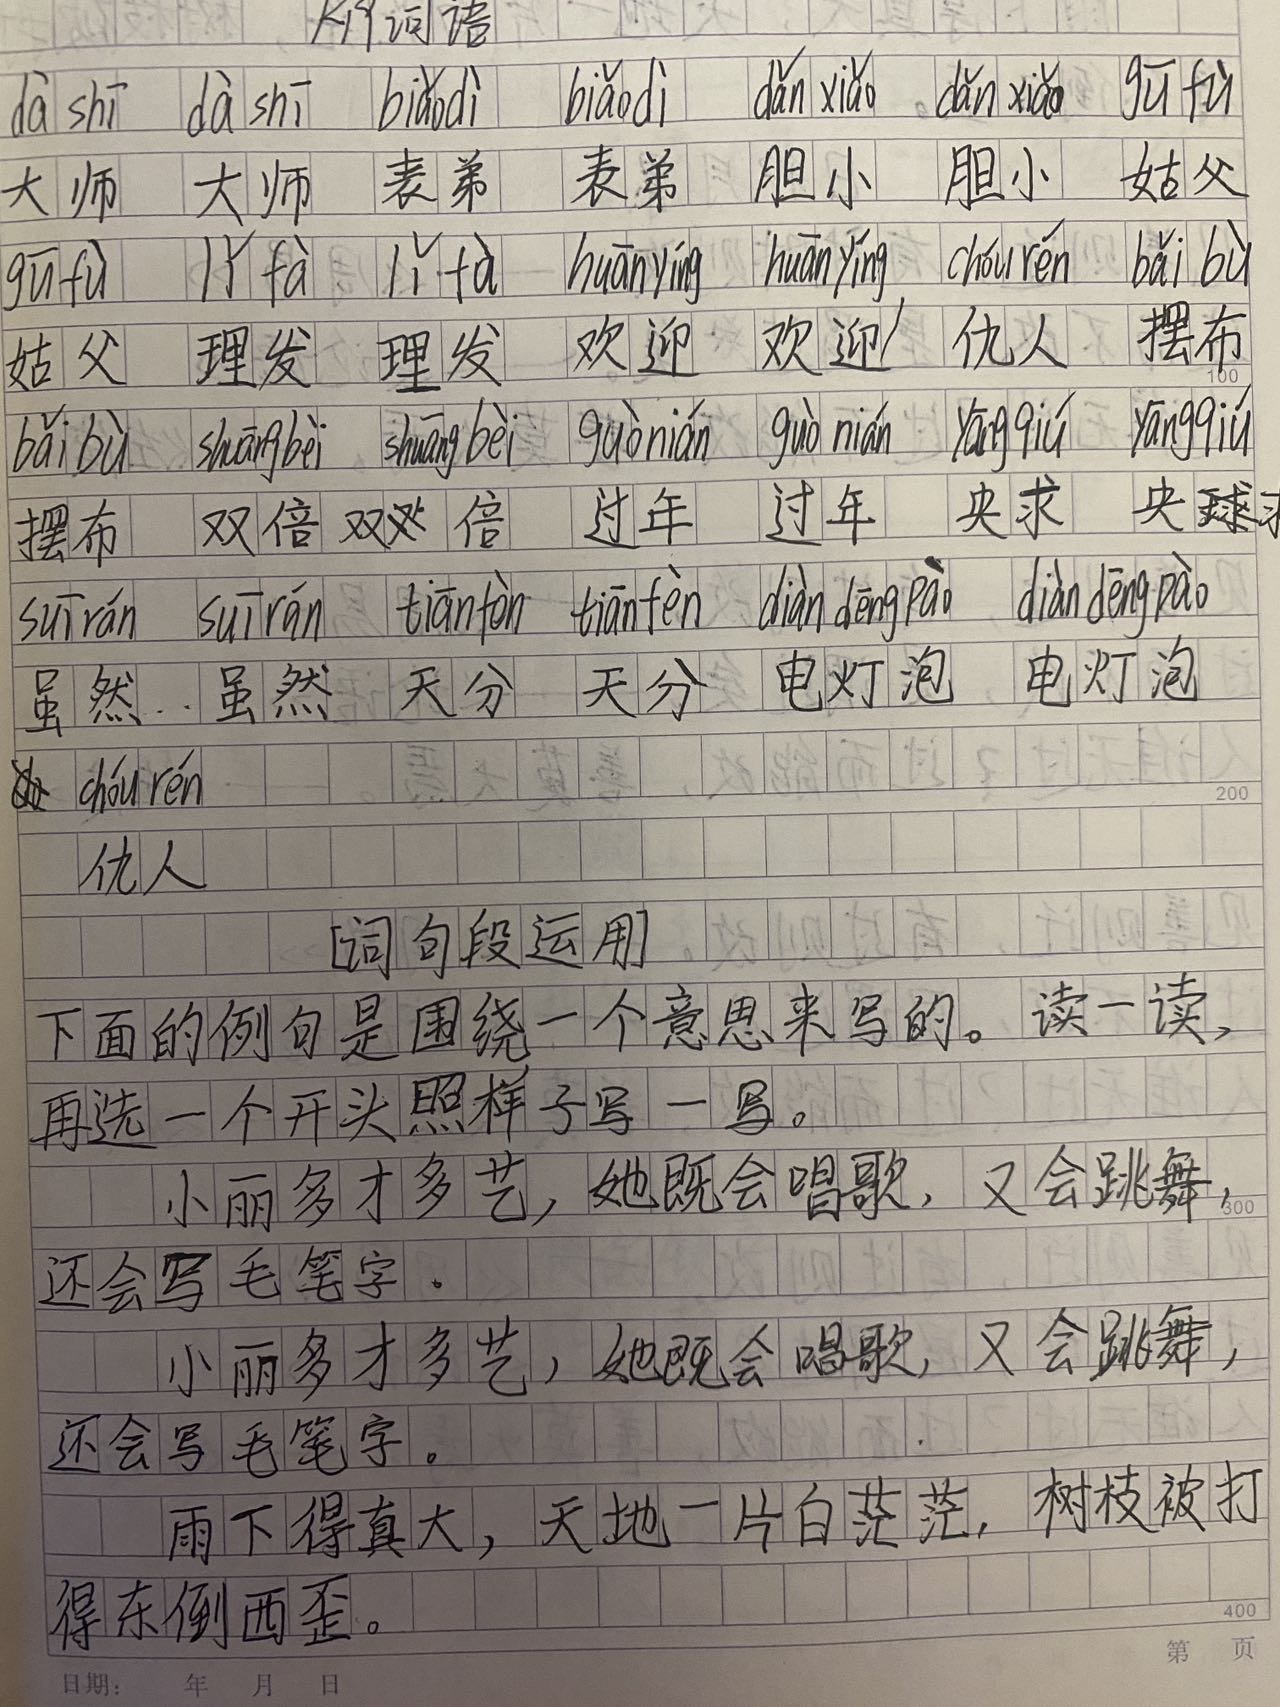 词语
dà shī dà shī biǎodì biǎodì dǎn xiǎo dǎn xiǎo gū fù
大师 大师 表弟 表弟 胆小 胆小 姑父
gū fù lǐ fà lǐ fà huānyíng huānyíng chóu rén bǎi bù
姑父 理发 理发 欢迎 欢迎 仇人 摆布
bǎi bù shuāngbèi shuāngbèi guònián guònián yāngqiú yāngqiú
摆布 双倍 双倍 过年 过年 央求 央求
suī rán suī rán tiānfèn tiānfèn diàn dēng pào diàn dēng pào
虽然 虽然 天分 天分 电灯泡 电灯泡
chóu rén
200
仇人
[词句段运用]
下面的例句是围绕一个意思来写的。读一读,
再选一个开头照样子写一写。
小丽多才多艺,她既会唱歌,又会跳舞,
300
还会写毛笔字.
小丽多才多艺,她既会唱歌,又会跳舞,
还会写毛笔字。
雨下得真大,天地一片白茫茫,树枝被打
得东倒西歪。
400
第 页
日期: 年 月 日